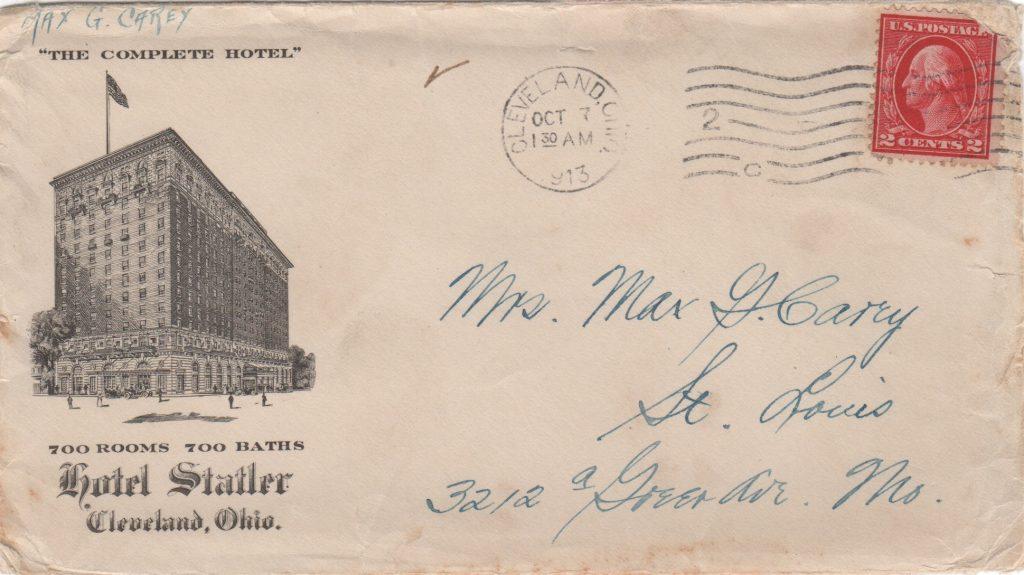 MAX G. CAREY
"THE COMPLETE HOTEL"
CLEVELAND, OHIO
OCT 7
1 30 AM
1913
2
C
U.S. POSTAGE
2 CENTS 2
Mrs. Max G. Carey
St. Louis
3212 a Greer Ave. Mo.
700 ROOMS 700 BATHS
Hotel Statler
Cleveland, Ohio.